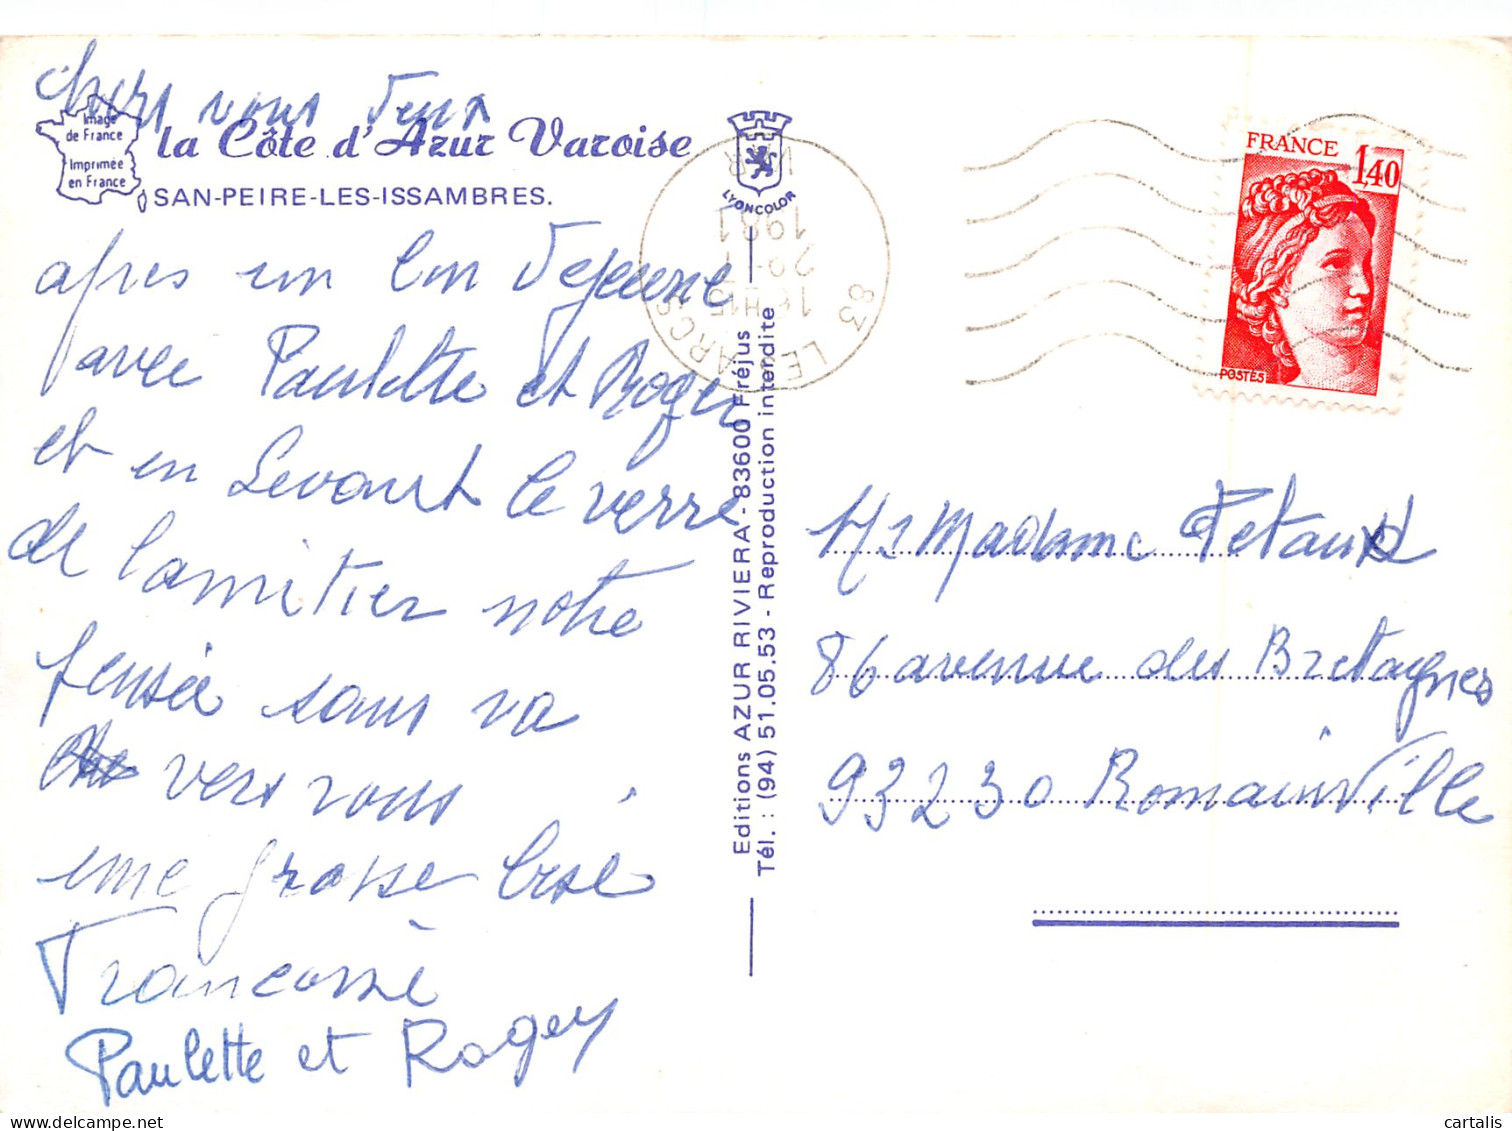 chers vous deux
Image
de France
Imprimée
en France
la Côte d'Azur Varoise
SAN-PEIRE-LES-ISSAMBRES.
apres un bon dejeune
avec Paulette et Roger
et en Levant le verre
de lamitier notre
pensée sans va
vers vous
une grosse bise
Paulette et Roger
LYONCOLOR
83 LES ARCS
VAR
1981
Editions AZUR RIVIERA - 83600 Fréjus
Tél. : (94) 51.05.53 - Reproduction interdite
FRANCE
1,40
POSTES
Mr Madame Petaux
86 avenue des Bretagnes
93230 Romainville
cartalis